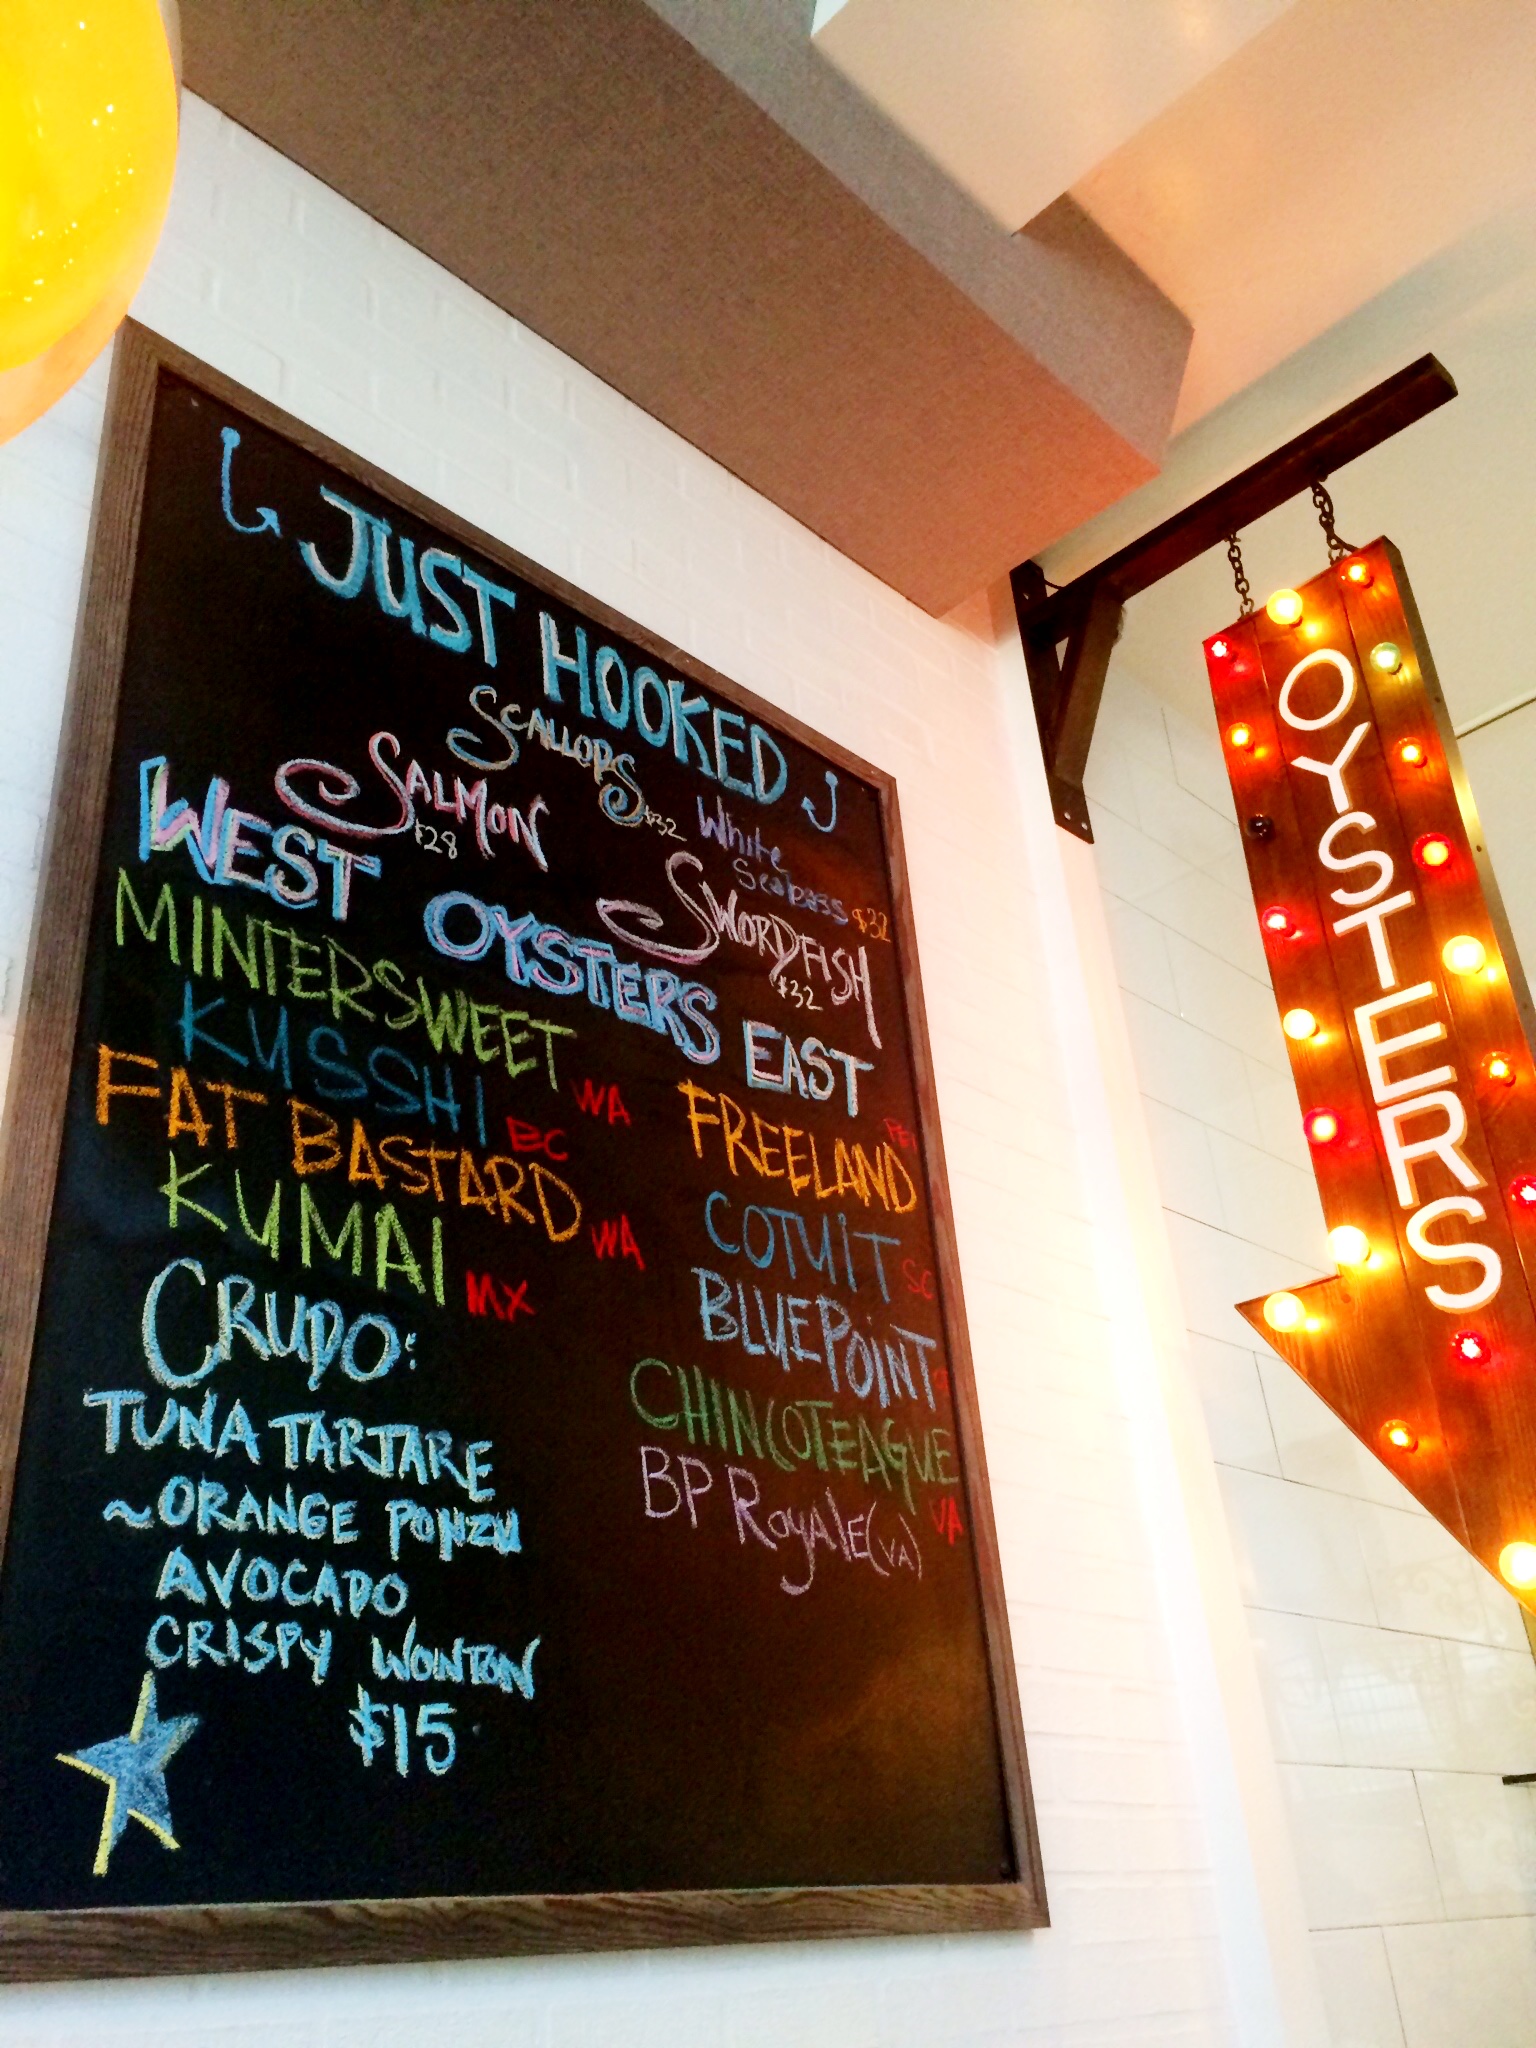 JUST HOOKED
SCALLOPS $32
SALMON $28
White Seabass $32
SWORDFISH $32
WEST OYSTERS EAST
MINTERSWEET WA
KUSSHI BC
FAT BASTARD WA
KUMAI MX
FREELAND PEI
COTUIT SC
BLUEPOINT
CHINCOTEAGUE VA
BP Royale (VA)
CRUDO:
TUNA TARTARE
~ORANGE PONZU
AVOCADO
CRISPY WONTON
$15
OYSTERS